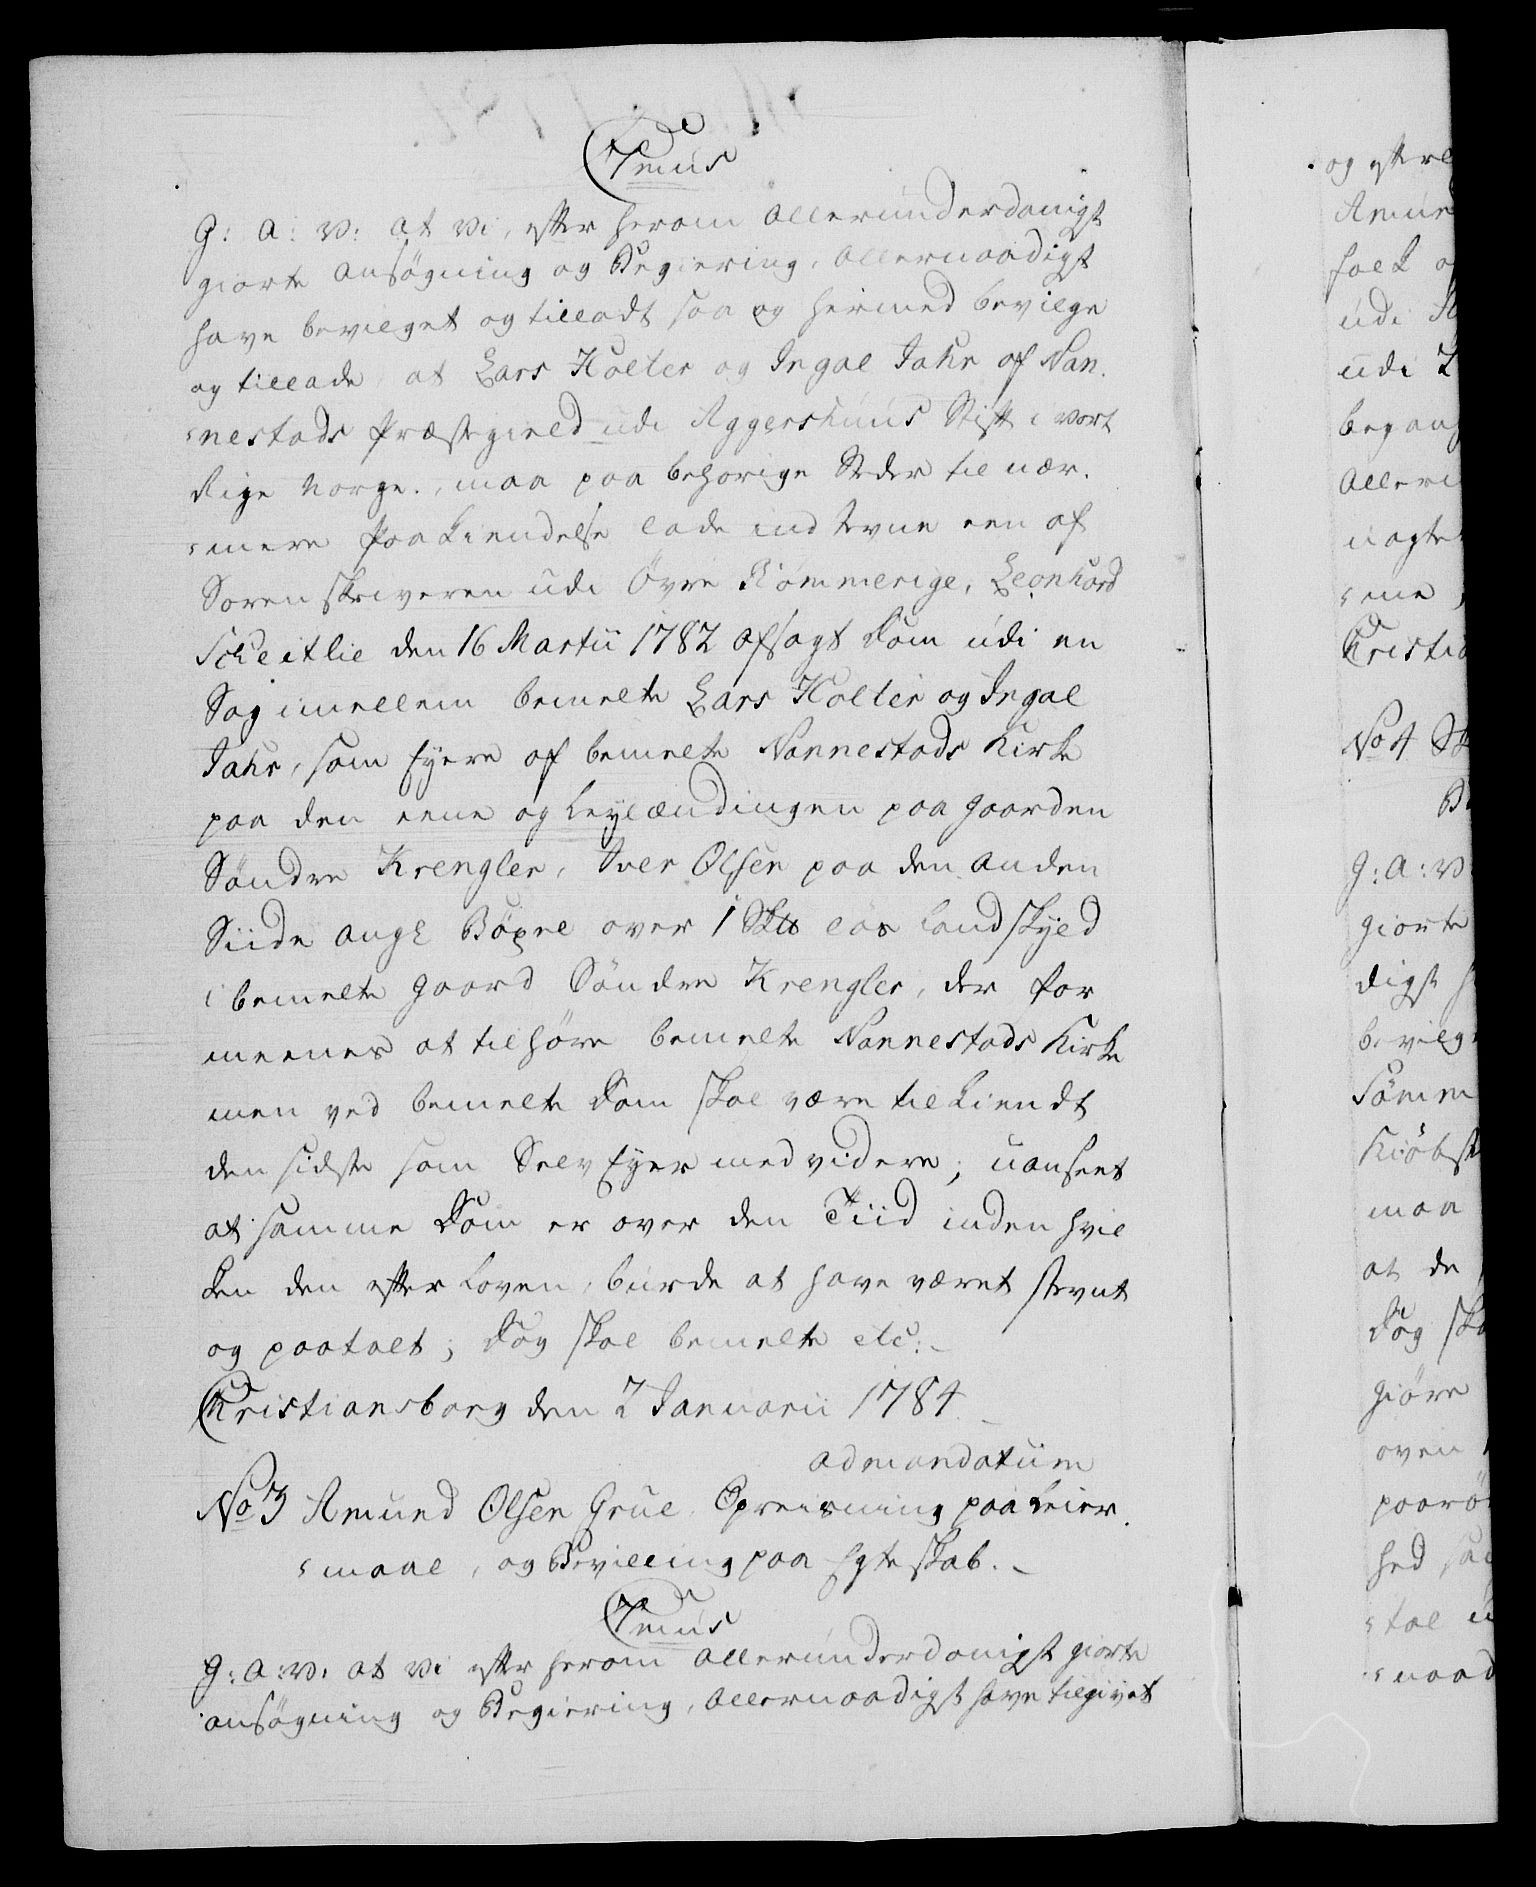 C 7mus
G: A: V: at Vi, efter herom Allerunderdanigst
giorte Ansögning og Begiering, Allernaadigst
have bevilget og tilladt saa og hermed bevilge
og tillade, at Lars Holter og Ingal Jahr af Nan-
nestads Præstegield udi Aggershuus Stift i Vort
Rige Norge, maa paa behorige Steder til nær-
mere Paakiendelse lade indstevne een af
Sorenskriveren udi Övre Rømmerige, Leonhard
Scheitlie den 16 Martii 1782 afsagt Dom udi en
Sag imellem bemelte Lars Holter og Ingal
Jahr, som Eyere af bemelte Nannestads Kirke
paa den eene og Leylændingen paa Gaarden
Söndre Krengler, Iver Olsen paa den anden
Siide angl Böxel over 1 Sk℔ lös Landskyld
i bemelte Gaard Söndre Krengler, der for
meenes at tilhöre bemelte Nannestads Kirke
men ved bemelte Dom skal være tilkiendt
den sidste som Selv Eyer med videre; uanseet
at samme Dom er over den Tiid inden hvil
ken den efter Loven, burde at have været stevnt
og paatalt; Dog skal bemelte etc:
Christiansborg den 2 Januarii 1784
ad mandatum
No 3 Amund Olsen Grue Opreisning paa Leier-
maal, og Bevilling paa Egteskab.
C 7mus
G: A: V: at Vi efter herom Allerunderdanigst giorte
Ansögning og Begiering, Allernaadigst have tilgivet
og efterl
Amun
folk o
udi
udi
begang
Alleru
uagte
me
Christia
No 4 Sk
G: A: V:
giorte
digst h
bevilg
Sömm
Kiöbst
maa
at de
Dog ska
giöre
oven
paarö
hed saa
tal u
naad